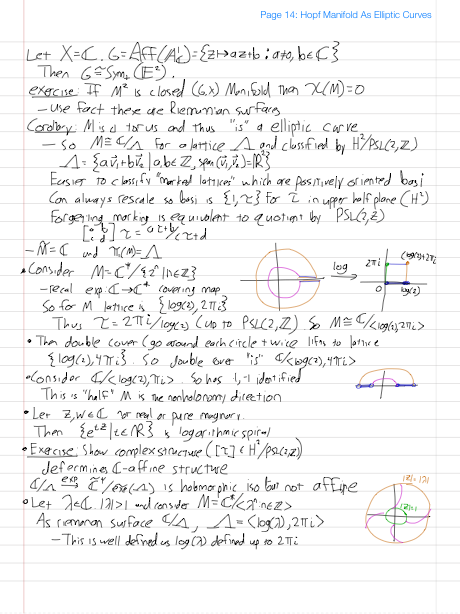 Page 14: Hopf Manifold As Elliptic Curves
Let X=ℂ, G=Aff(A¹_ℂ)={z↦az+b : a≠0, b∈ℂ}
Then G≅Sim₊(𝔼²).
exercise: If M² is closed (G,X) Manifold then χ(M)=0
- Use fact these are Riemannian surfaces
Corollary: M is a torus and thus "is" a elliptic curve
- So M≅ℂ/Λ for a lattice Λ and classified by H²/PSL(2,ℤ)
Λ={av⃗₁+bv⃗₂ | a,b∈ℤ, span(v⃗₁,v⃗₂)=ℝ²}
Easier to classify "marked lattices" which are positively oriented basi
Can always rescale so basi is {1,τ} for τ in upper half plane (H²)
Forgetting marking is equivalent to quotient by PSL(2,ℤ)
[a b; c d] τ = aτ+b/cτ+d
- M̃=ℂ and π₁(M)=Λ
• Consider M=ℂ*/{2ⁿ | n∈ℤ}
-recal exp:ℂ→ℂ* covering map
So for M lattice is {log(2), 2πi}
Thus τ=2πi/log(2) (up to PSL(2,ℤ)). So M≅ℂ/<log(2),2πi>
log
2πi
log(2)+2πi
0
log(2)
• Then double cover (go around each circle twice lifts to lattice
{log(2), 4πi}. So double cover "is" ℂ/<log(2),4πi>
• Consider ℂ/<log(2),πi>. So has 1,-1 identified
This is "half" M is the nonholonomy direction
• Let z,w∈ℂ not real or pure imaginary.
Then {e^{tz} | t∈ℝ} is logarithmic spiral
• Exercise: Show complex structure ([τ]∈H²/PSL(2,ℤ))
determines ℂ-affine structure
ℂ/Λ exp→ ℂ*/exp(Λ) is holomorphic iso but not affine
• Let λ∈ℂ, |λ|>1 and consider M=ℂ*/<λⁿ:n∈ℤ>
As riemann surface ℂ/Λ, Λ=<log(λ),2πi>
- This is well defined as log(λ) defined up to 2πi
|z|=|λ|
|z|=1